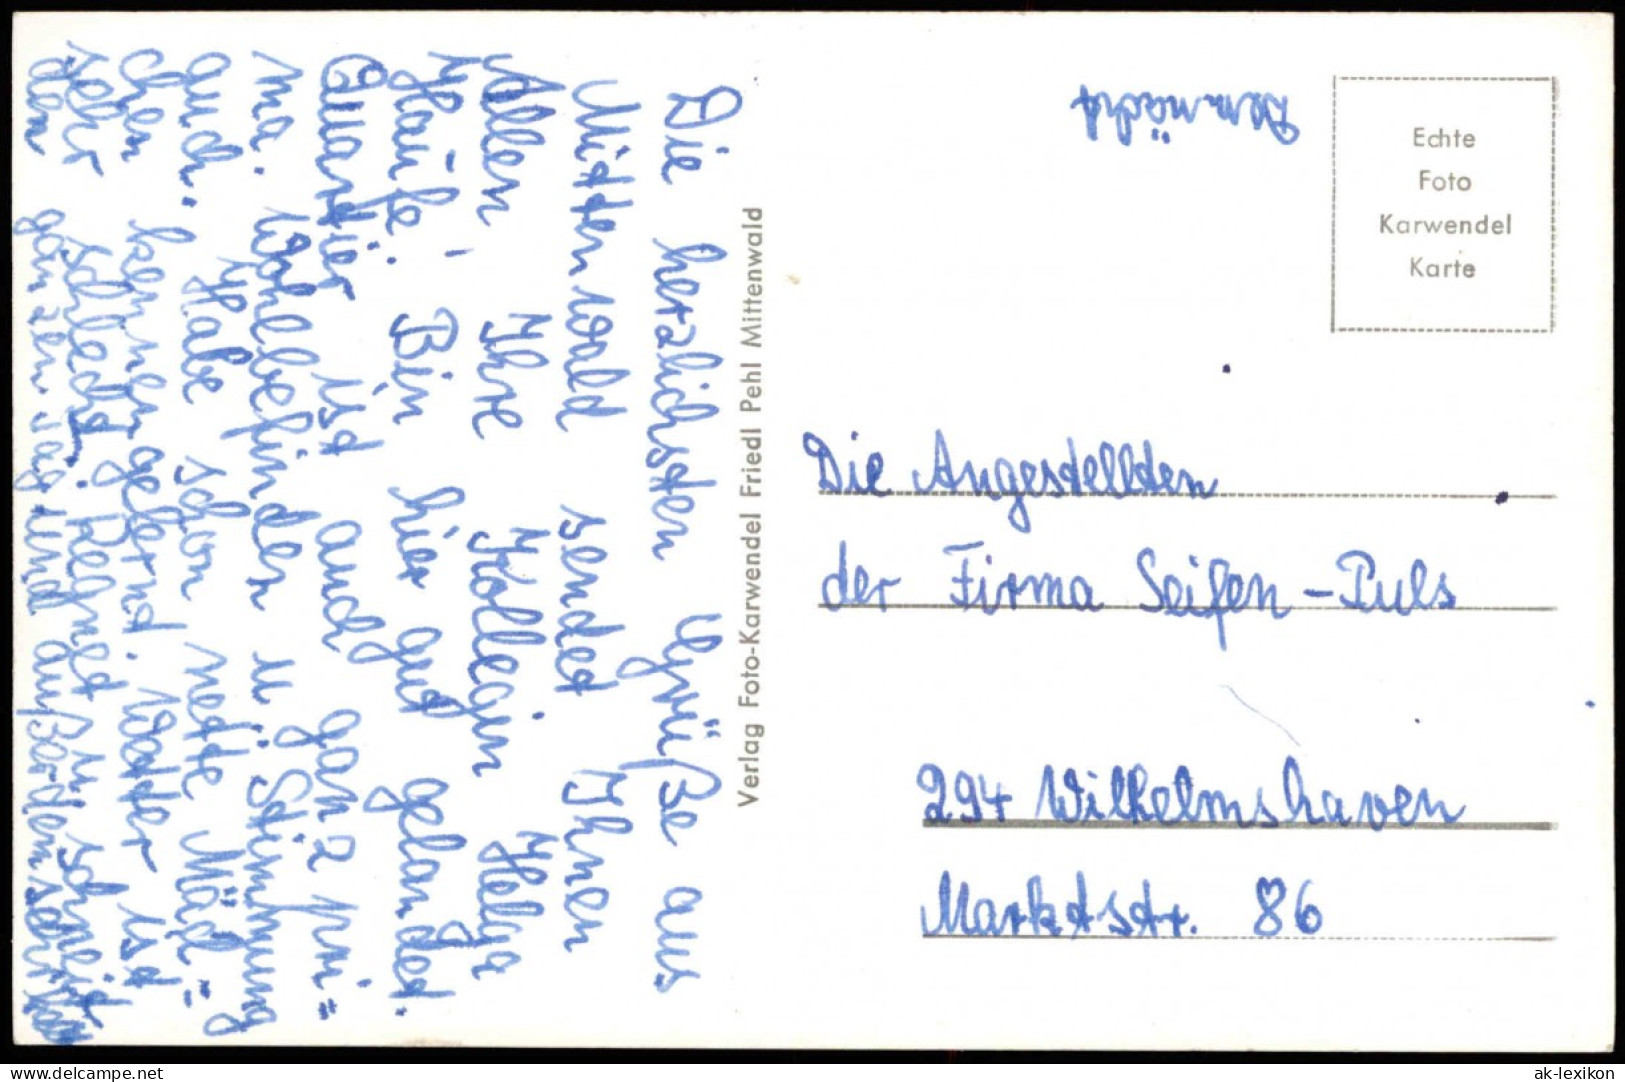 Die herzlichsten Grüße aus
Mittenwald sendet Ihnen
Allen, Ihre Kollegin Helga
Häuße. Bin hier gut gelandet.
Quartier ist auch ganz pri=
ma. Wohlbefinden u. Stimmung
auch. Habe schon nette Mäd=
chen kennengelernt. Wetter ist
sehr schlecht. Regnet u. schneit
den ganzen Tag und außerdem sehr
Verlag Foto-Karwendel Friedl Pehl Mittenwald
Demnächst
Echte
Foto
Karwendel
Karte
Die Angestellten
der Firma Seifen-Puls
294 Wilhelmshaven
Marktstr. 86
delcampe.net
ak-lexikon